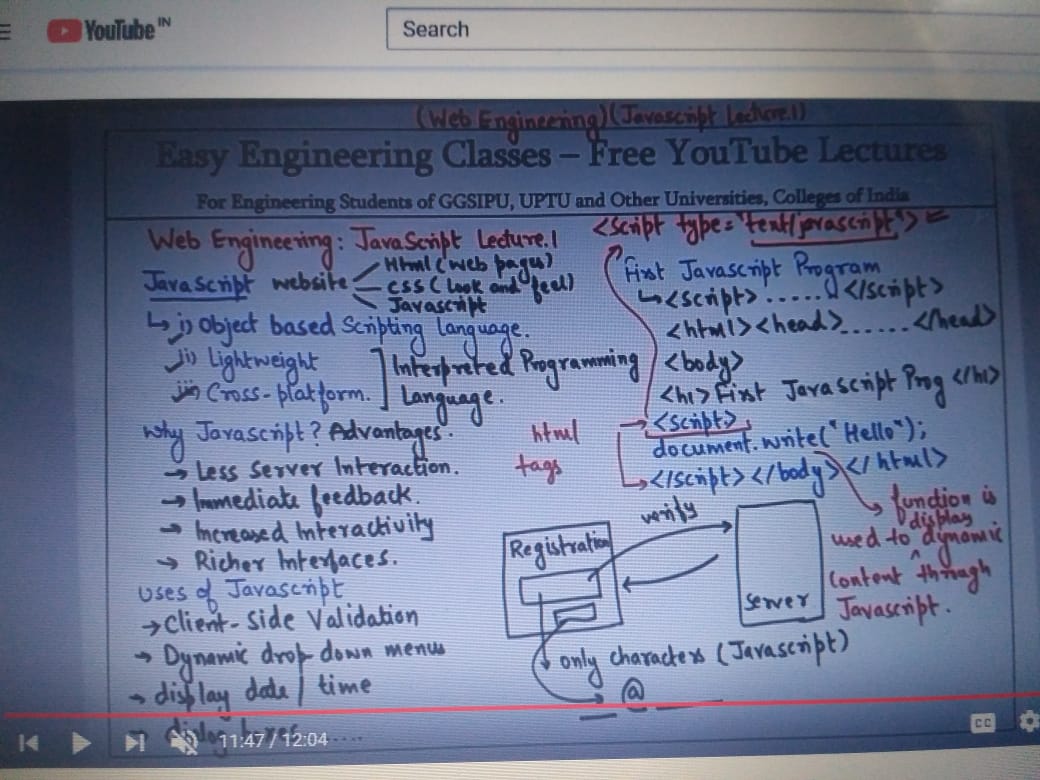 YouTube IN
Search
(Web Engineering) (Javascript Lecture.1)
Easy Engineering Classes – Free YouTube Lectures
For Engineering Students of GGSIPU, UPTU and Other Universities, Colleges of India
Web Engineering: JavaScript Lecture.1
JavaScript website
Html (web pages)
CSS (Look and feel)
Javascript
i) Object based Scripting language.
ii) Lightweight
iii) Cross-platform.
Interpreted Programming
Language.
Why Javascript? Advantages.
→ Less Server Interaction.
→ Immediate feedback.
→ Increased Interactivity
→ Richer Interfaces.
Uses of Javascript
→ Client-Side Validation
→ Dynamic drop down menus
→ display date / time
→ dialog boxes......
<script type="text/javascript">
First Javascript Program
<script> ...... </script>
<html><head>......</head>
<body>
<h1> First Javascript Prog </h1>
html
tags
<script>
document.write("Hello");
</script></body></html>
function is
display
used to ^ dynamic
content through
Javascript.
verify
Registration
Server
only characters (Javascript)
__ @ ____
CC
11:47 / 12:04